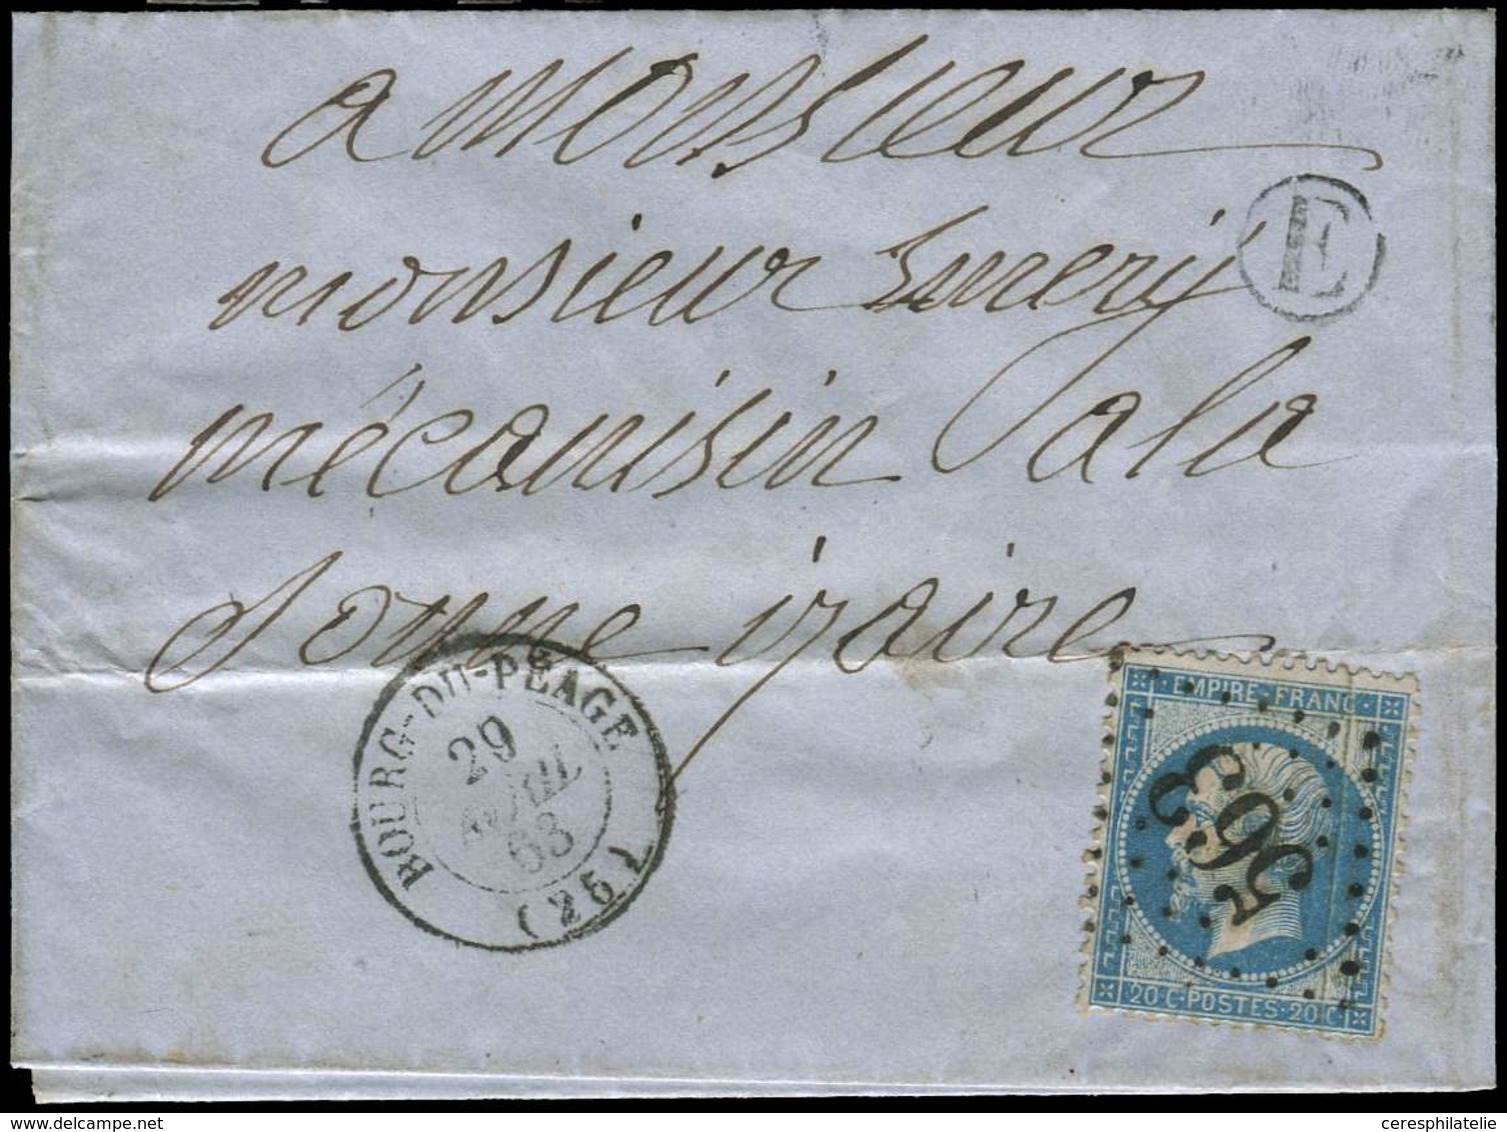 a Monsieur
E
monsieur Emery
mécanisin Pala
Sonne izaire
BOURG-DU-PÉAGE
29
AVRIL
63
(25)
EMPIRE·FRANC·
3695
20·C·POSTES·20·C
ceresphilatelie